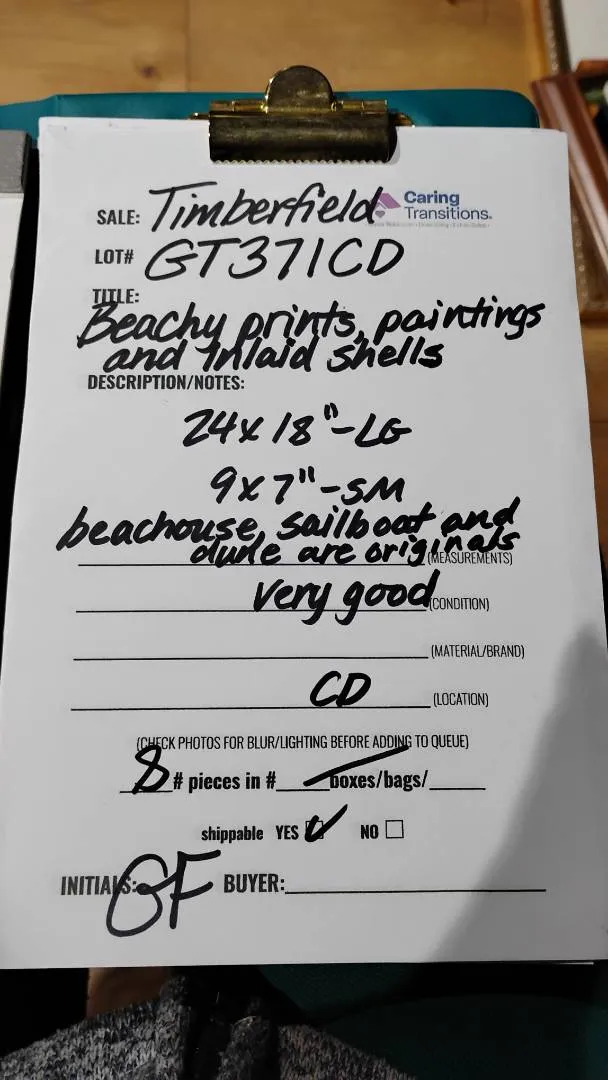 SALE: Timberfield Caring Transitions.
LOT# GT371CD
TITLE:
Beachy prints, paintings
and Inlaid shells
DESCRIPTION/NOTES:
24x18"-LG
9x7"-SM
beachouse, sailboat and
dude are originals (MEASUREMENTS)
Very good (CONDITION)
(MATERIAL/BRAND)
CD (LOCATION)
(CHECK PHOTOS FOR BLUR/LIGHTING BEFORE ADDING TO QUEUE)
8 # pieces in # boxes/bags/
shippable YES NO
INITIALS: GF BUYER: